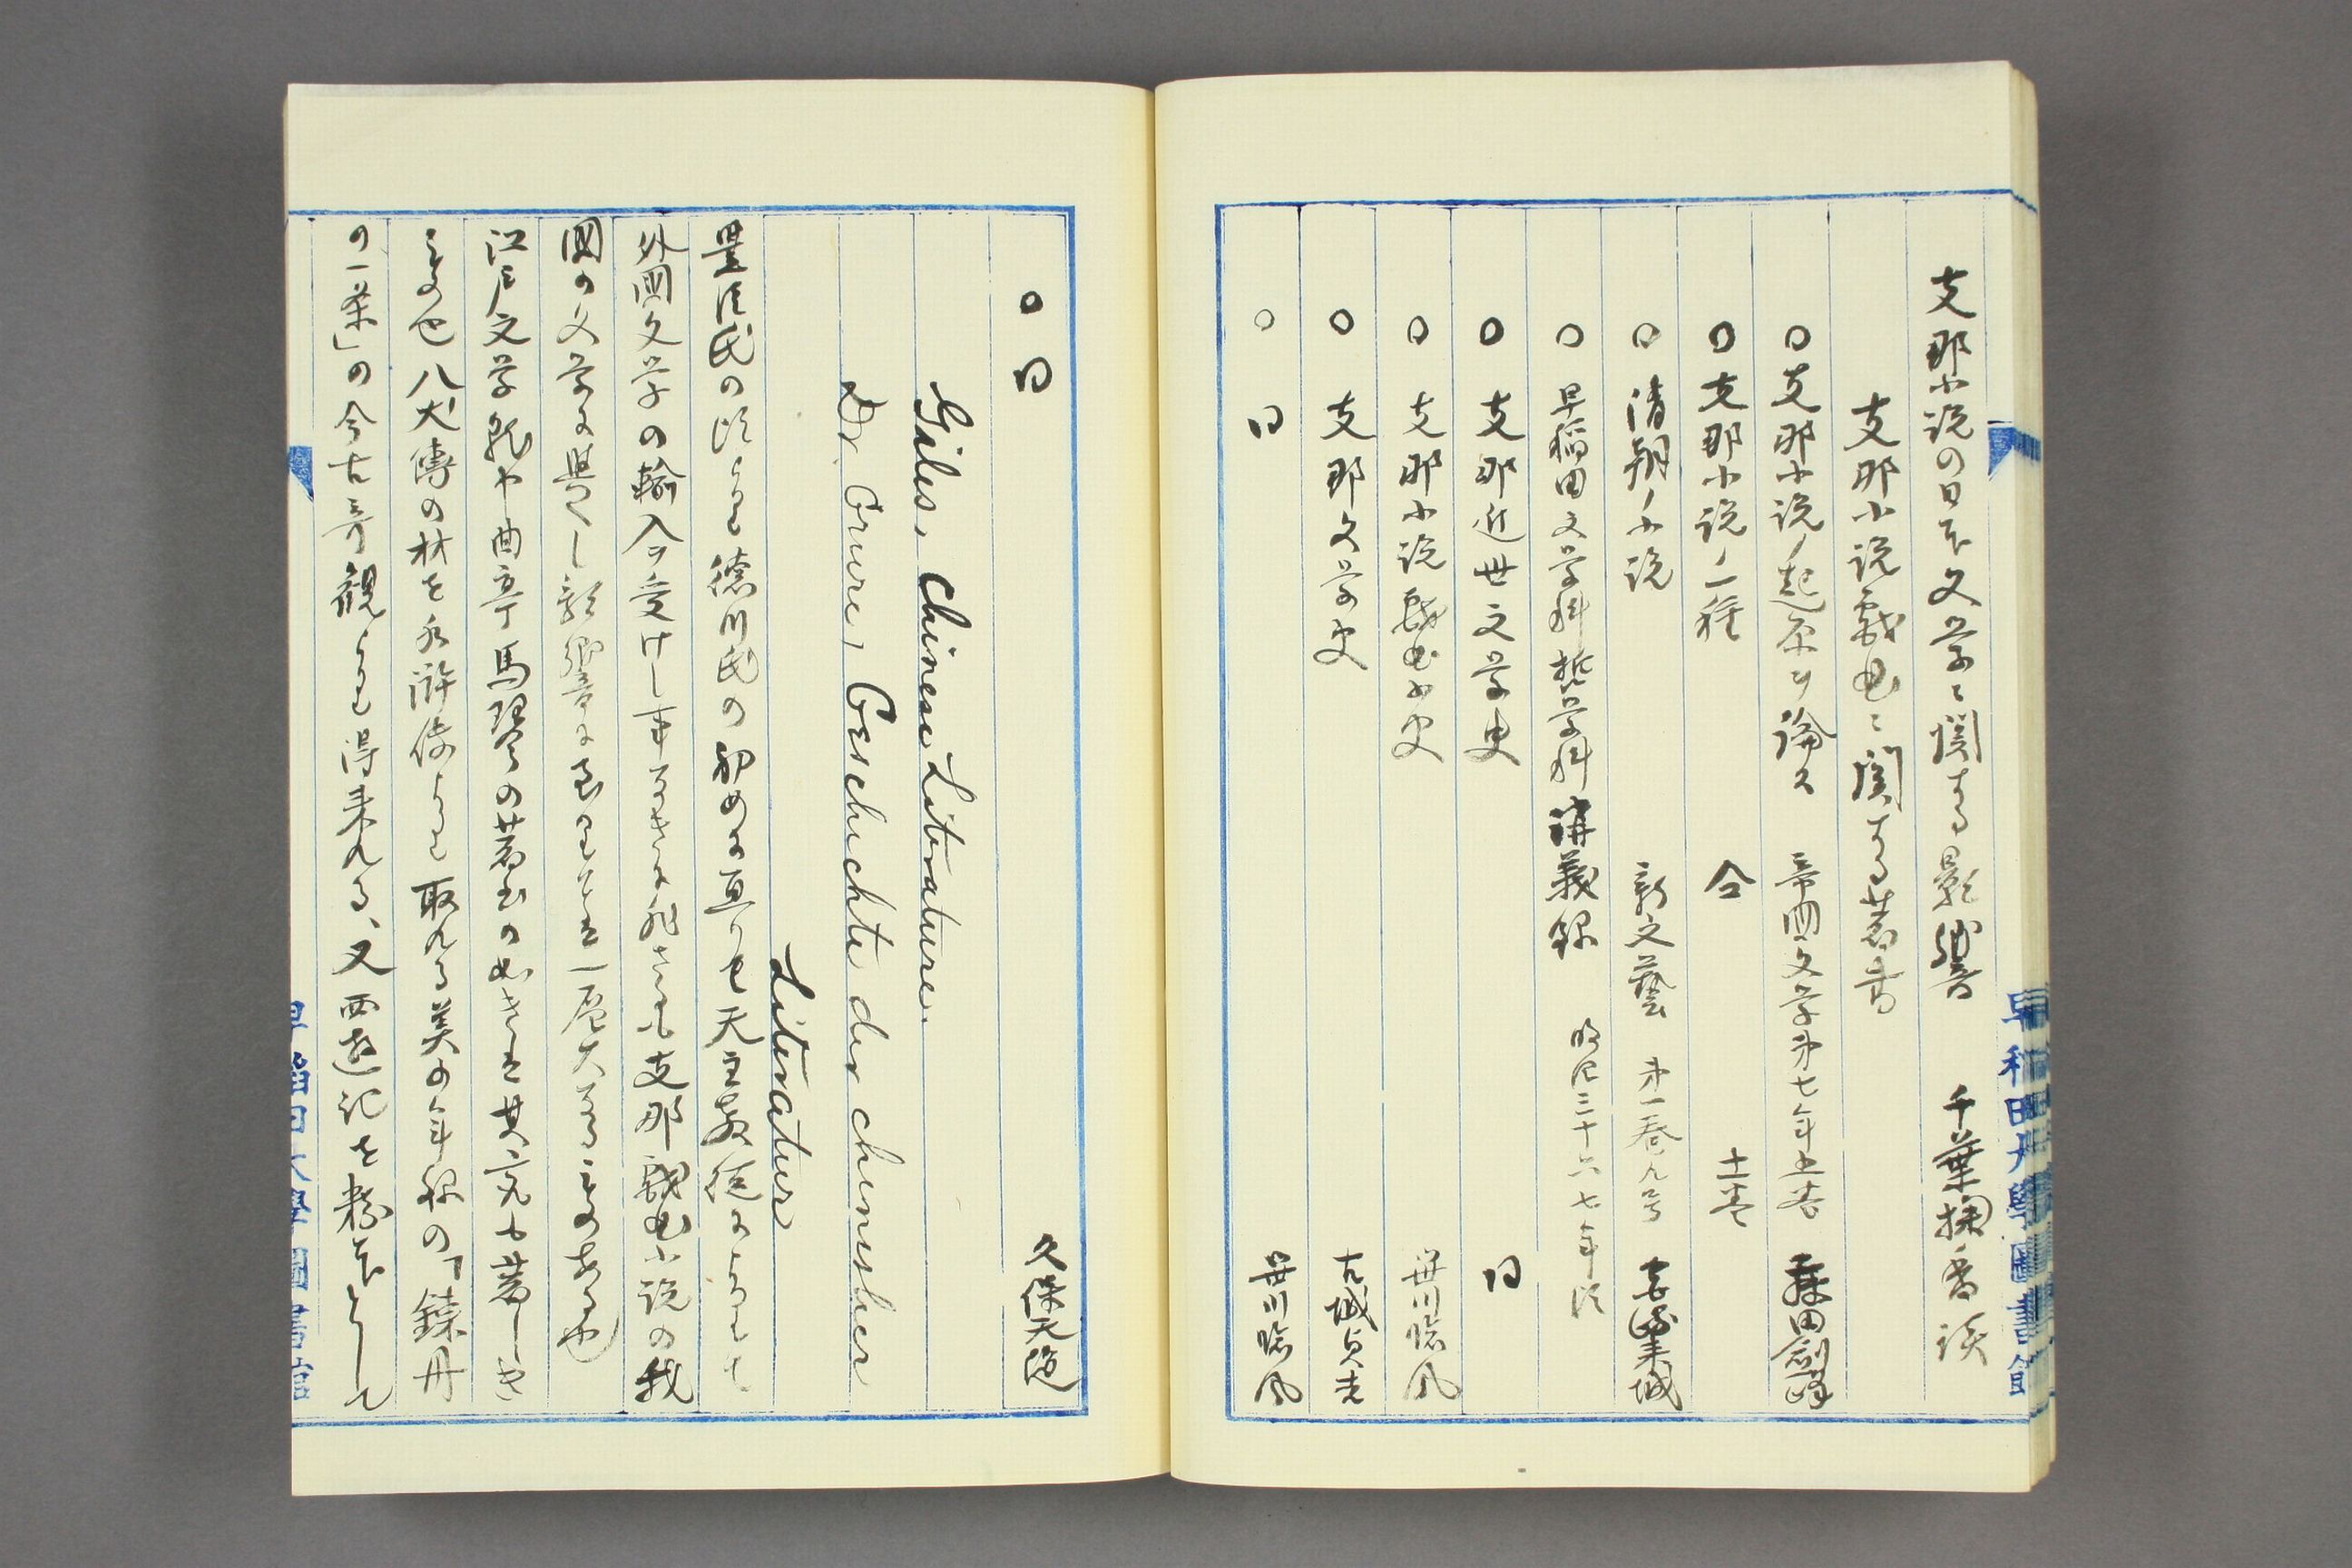 支那小説の日本文学ニ関する影響 千葉掬香談
支那小説戯曲ニ関する著書
○支那小説ノ起原ヲ論ス 帝国文学第七年 藤田剣峰
○支那小説ノ一種 仝
○清朝ノ小説 新文藝 第一巻九号
○早稲田文学科哲学科講義録 明治三十六七年頃
○支那近世文学史 同
○支那小説戯曲小史 笹川臨風
○支那文学史 古城貞吉
○同 笹川臨風
早稲田大學圖書館
○同 久保天随
Giles, Chinese Literature.
Dr. Gruwe, Geschichte der chinesischer
Literatur
豊臣氏の頃より徳川氏の初めに亘りて天主教徒によりて
外国文学の輸入ヲ受けし事なきに非されど支那戯曲小説の我
国の文学に與へし影響に至りては一層大なるものあるや
江戸文学就中曲亭馬琴の著書の如きは其最も著しき
もの也八犬傳の材を水滸伝より取れる美少年録の「錬丹
の一業」の今古奇観より得来れる、又西遊記を粉本として
早稲田大學圖書館